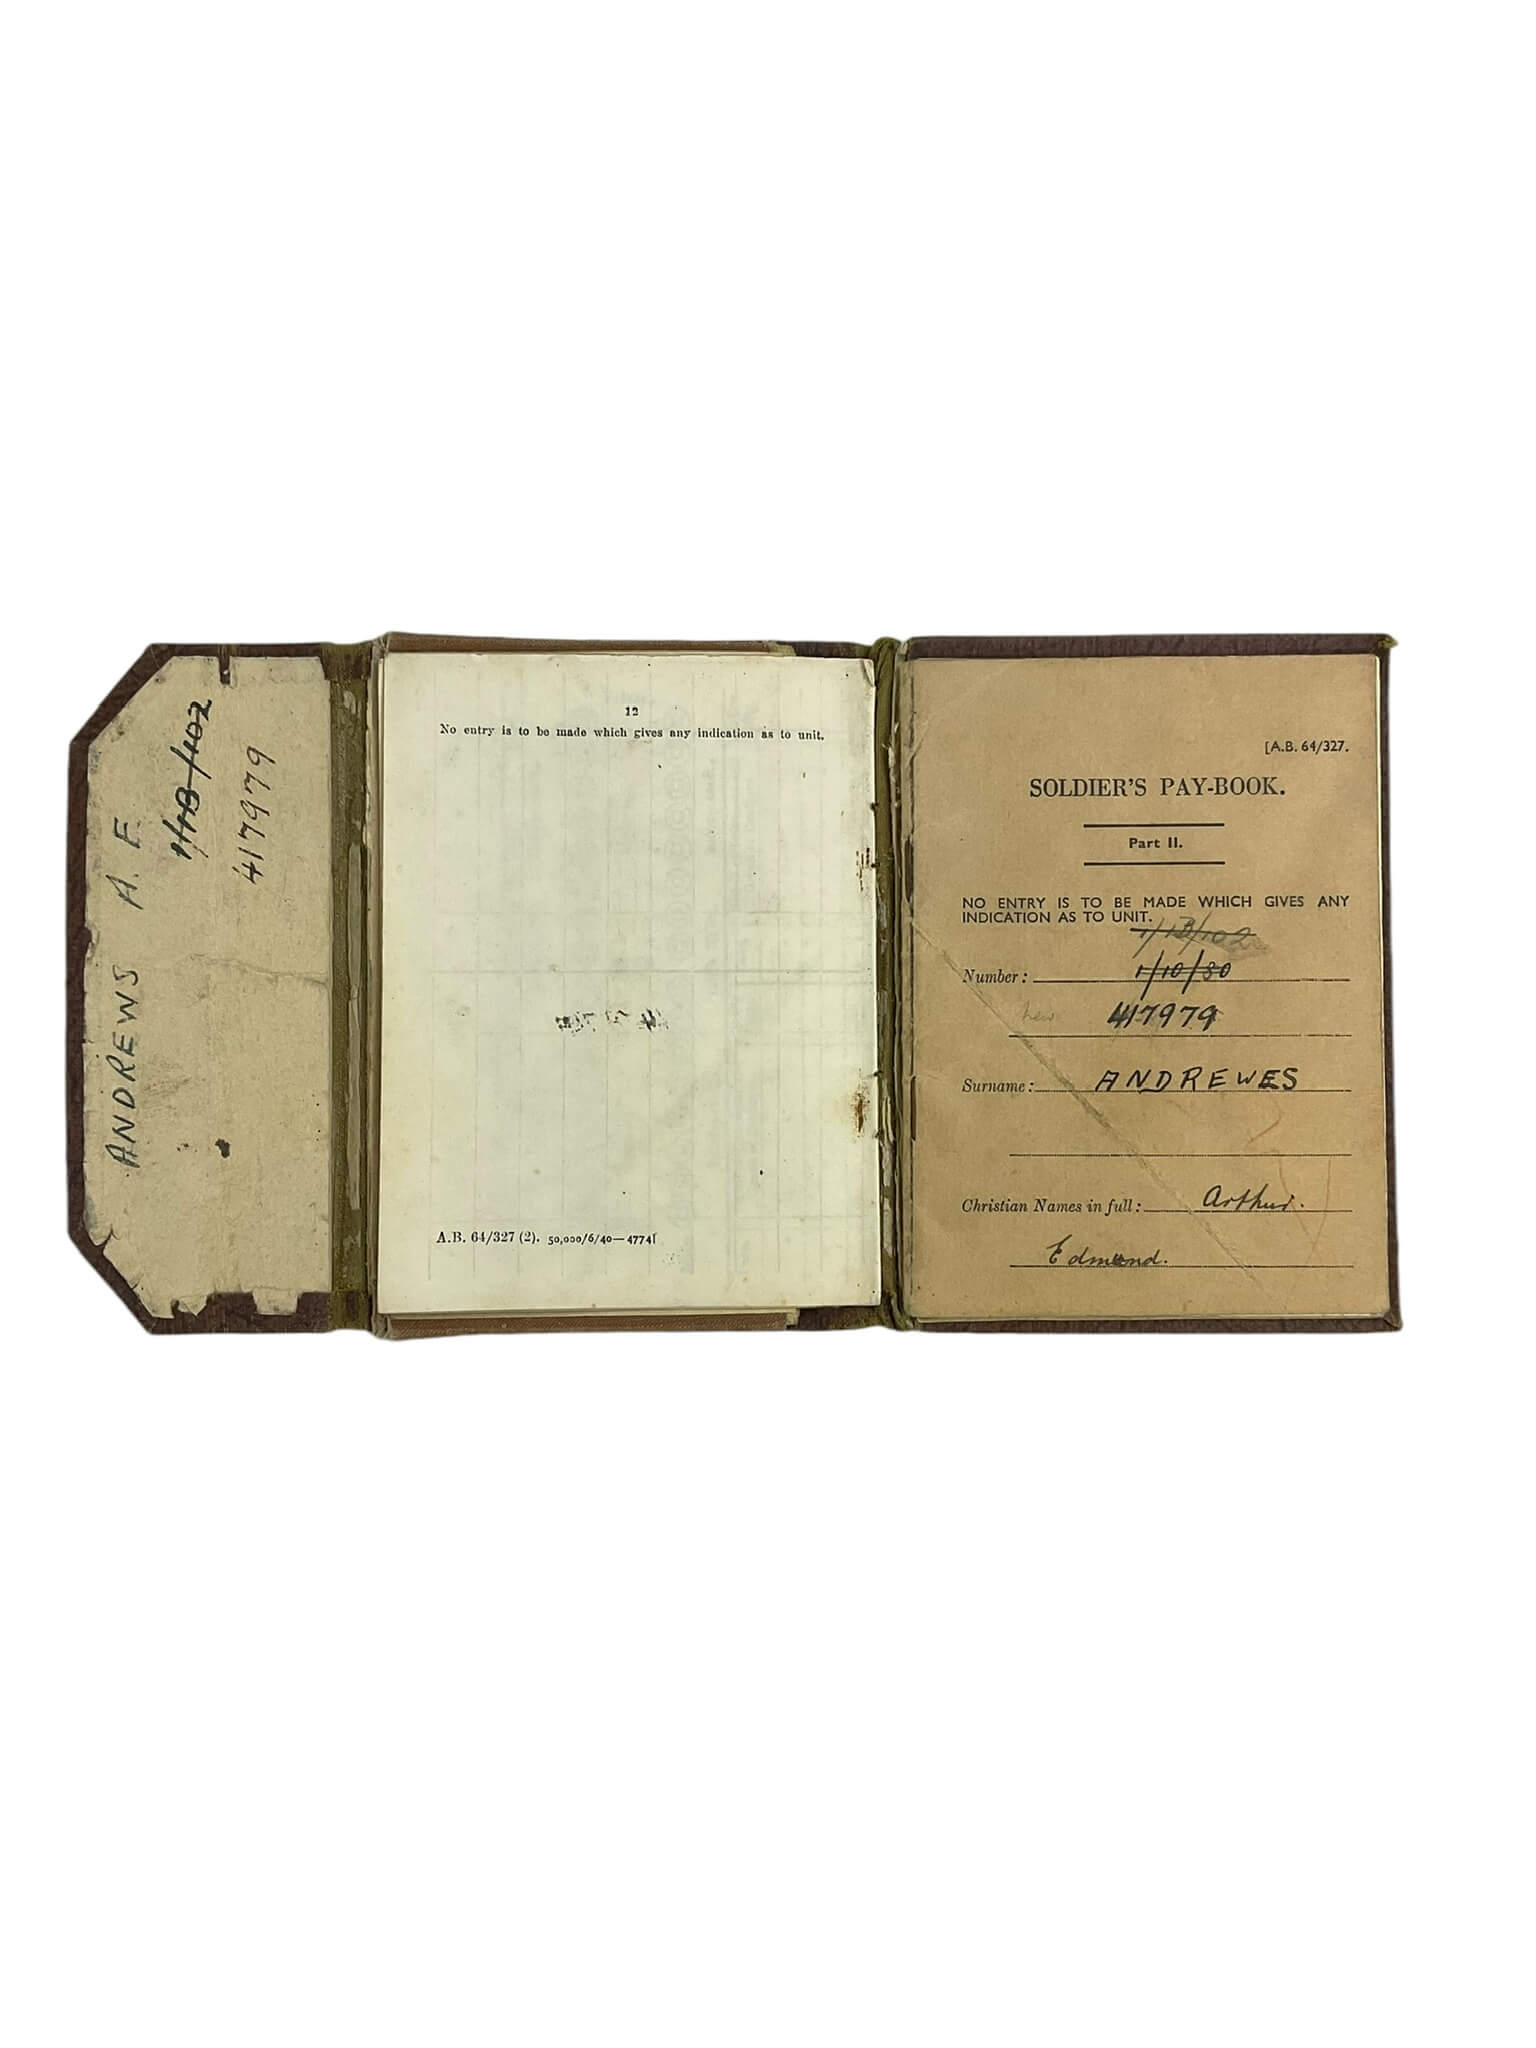 ANDREWS A. E.
417979
12
No entry is to be made which gives any indication as to unit.
A.B. 64/327 (2). 50,000/6/40—4774I
[A.B. 64/327.
SOLDIER'S PAY-BOOK.
Part II.
NO ENTRY IS TO BE MADE WHICH GIVES ANY
INDICATION AS TO UNIT.
1/13/102
Number: 1/10/80
new 417979
Surname: ANDREWES
Christian Names in full: Arthur.
Edmund.